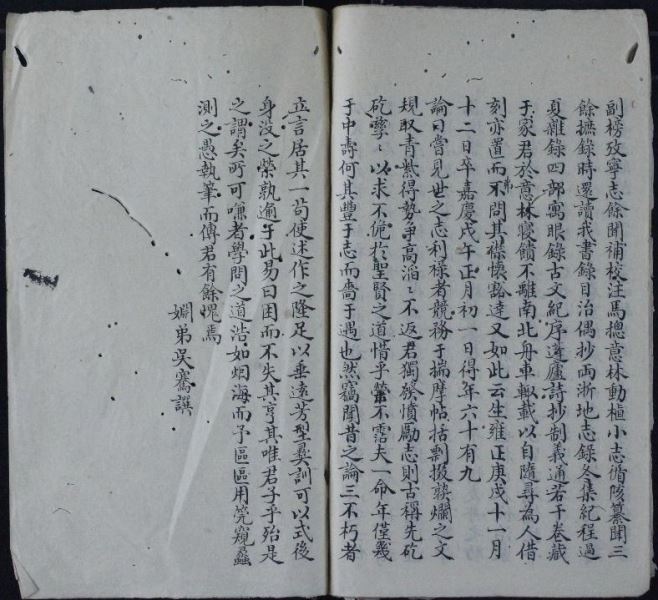 副榜攷寧志餘聞補校注馬總意林動植小志循陔纂聞三
餘摭錄時還讀我書錄目治偶抄兩浙地志錄冬集紀程過
夏雜錄四部寓眼錄古文紀序遂廬詩抄制義通若干卷藏
于家君於意林寢饋不離南北舟車輙載以自隨尋為人借
刻亦置而不問其襟懷豁達又如此云生雍正庚戌十一月
十二日卒嘉慶戊午正月初一日得年六十有九
論曰嘗見世之志利祿者競務于揣摩帖括剽掇談爛之文
規取青紫得勢爭高滔〻不返君獨發憤勵志則古稱先矻
矻孳〻以求不俛於聖賢之道惜乎不霑夫一命年僅幾
于中壽何其豐于志而嗇于遇也然竊聞昔之論三不朽者
立言居其一苟使述作之隆足以垂遠芳型彝訓可以式後
身没之榮孰逾于此易曰困而不失其亨其唯君子乎殆是
之謂矣所可嗛者學問之道浩如烟海而予區區用筦窺蠡
測之愚執筆而傳君有餘愧焉
姻弟吳騫譔